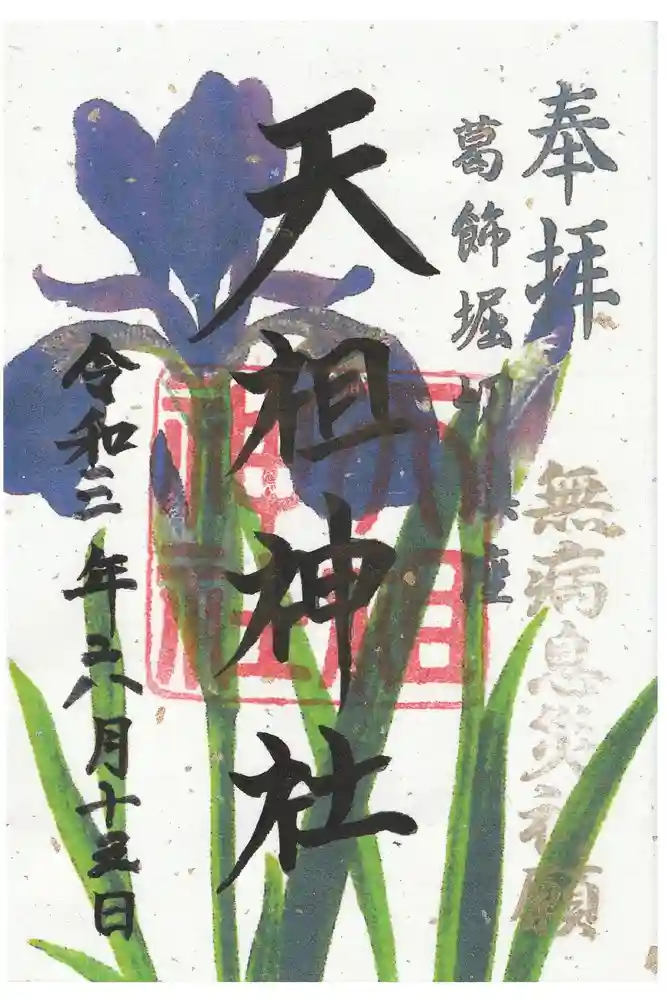 奉拝
葛飾堀切鎮座
無病息災祈願
天祖神社
天祖神社
令和二年六月十五日